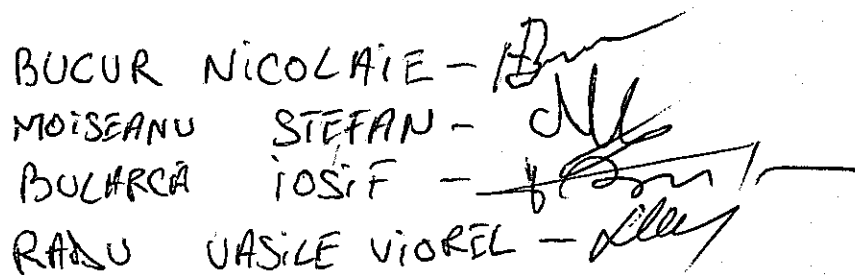 BUCUR NiCOLAiE -
MOiSEANU STEFAN -
BULARCĂ iOSiF -
RADU VASiLE ViOREL -